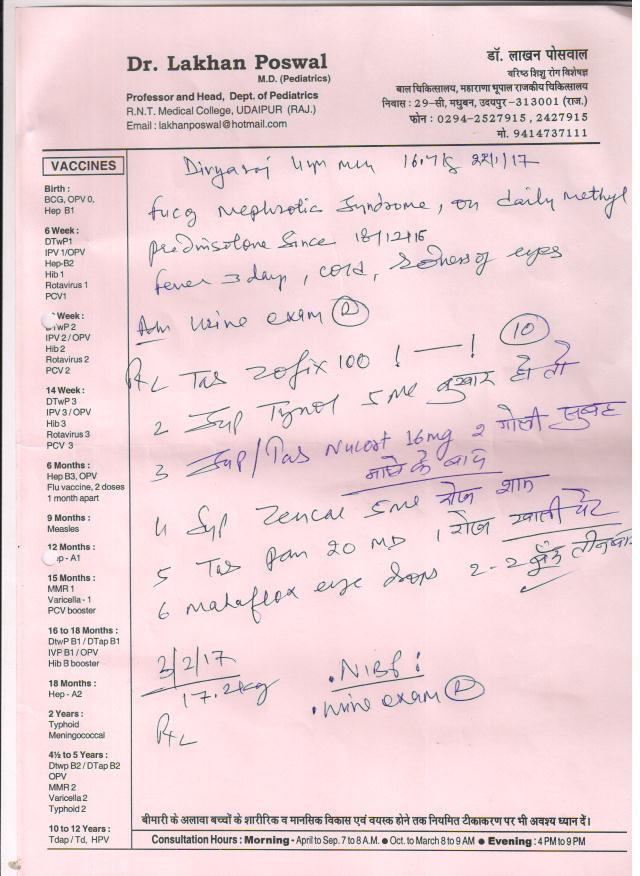 Dr. Lakhan Poswal
M.D. (Pediatrics)
Professor and Head, Dept. of Pediatrics
R.N.T. Medical College, UDAIPUR (RAJ.)
Email : lakhanposwal@hotmail.com
डॉ. लाखन पोसवाल
वरिष्ठ शिशु रोग विशेषज्ञ
बाल चिकित्सालय, महाराणा भूपाल राजकीय चिकित्सालय
निवास : 29-सी, मधुबन, उदयपुर-313001 (राज.)
फोन : 0294-2527915, 2427915
मो. 9414737111
VACCINES
Birth :
BCG, OPV 0,
Hep B1
6 Week :
DTwP1
IPV 1/OPV
Hep-B2
Hib 1
Rotavirus 1
PCV1
Week :
DTwP 2
IPV 2 / OPV
Hib 2
Rotavirus 2
PCV 2
14 Week :
DTwP 3
IPV 3 / OPV
Hib 3
Rotavirus 3
PCV 3
6 Months :
Hep B3, OPV
Flu vaccine, 2 doses
1 month apart
9 Months :
Measles
12 Months :
- A1
15 Months :
MMR 1
Varicella - 1
PCV booster
16 to 18 Months :
DtwP B1 / DTap B1
IVP B1 / OPV
Hib B booster
18 Months :
Hep - A2
2 Years :
Typhoid
Meningococcal
4½ to 5 Years :
Dtwp B2 / DTap B2
OPV
MMR 2
Varicella 2
Typhoid 2
10 to 12 Years :
Tdap / Td, HPV
Divyaraj 16.7kg 22/1/17
Nephrotic Syndrome, on daily methyl
prednisolone since 18/12/16
fever 3 day, cold, Redness of eyes
Adv urine exam (R)
Tab Zofix 100 ! — ! (10)
2 Syp Tynol 5 ml बुखार हो तो
3 Syp/Tab Nucort 16mg 2 गोली सुबह
नाश्ते के बाद
4 Syp Zencal 5ml रोज शाम
5 Tab Pan 20 MD 1 रोज खाली पेट
6 Mahaflox eye drops 2-2 बूंद तीनबार
3/2/17
17.2kg
. NIBP :
. urine exam (R)
बीमारी के अलावा बच्चों के शारीरिक व मानसिक विकास एवं वयस्क होने तक नियमित टीकाकरण पर भी अवश्य ध्यान दें।
Consultation Hours : Morning - April to Sep. 7 to 8 A.M. ● Oct. to March 8 to 9 AM ● Evening : 4 PM to 9 PM